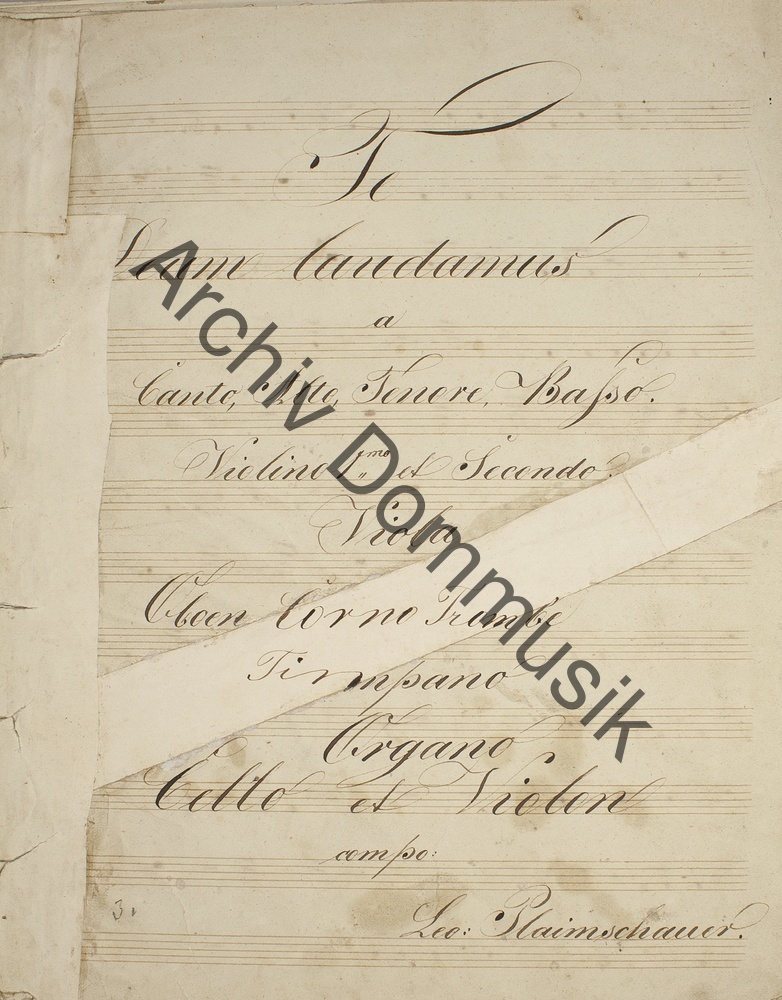 Te
Deum laudamus
a
Canto, Alto, Tenore, Basso.
Violino 1mo et Secondo.
Viola
Oboen Corno Trombe
Timpano
Organo
Cello et Violon
compo:
Leo: Plaimschauer.
3.
Archiv Dommusik